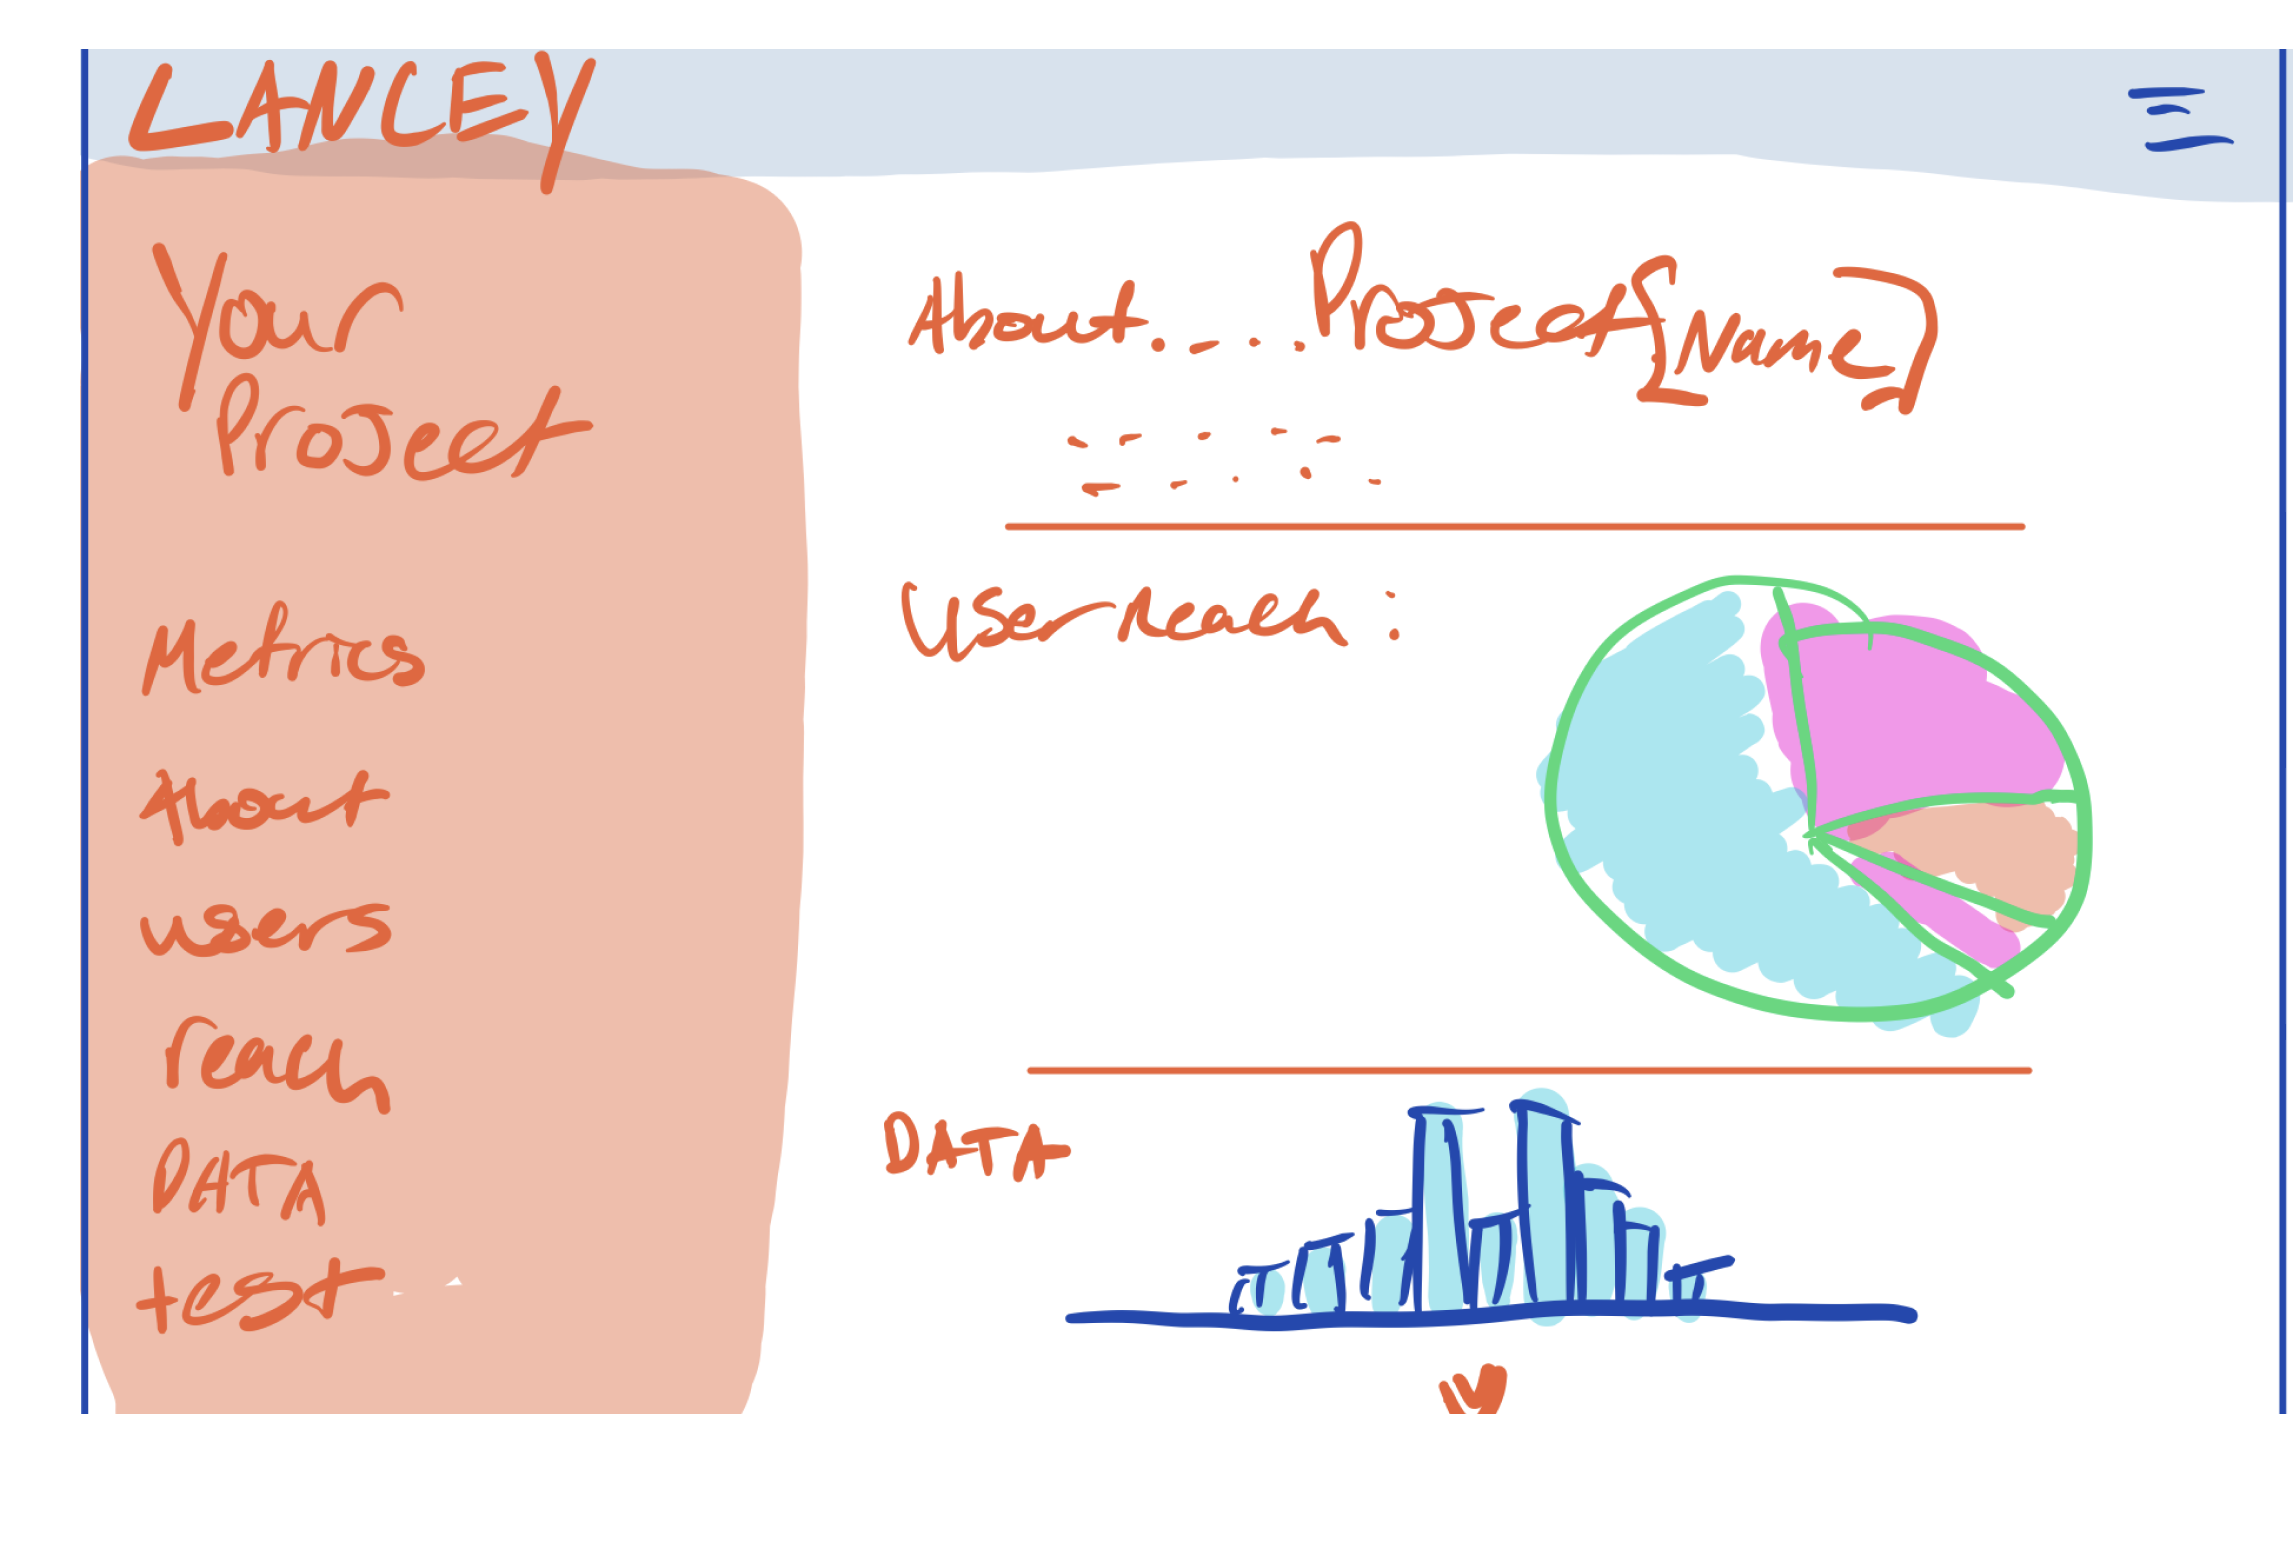 LANCEY
Your
Project
Metrics
About
users
reach
DATA
test
About.... Project [Name]
User reach :
DATA